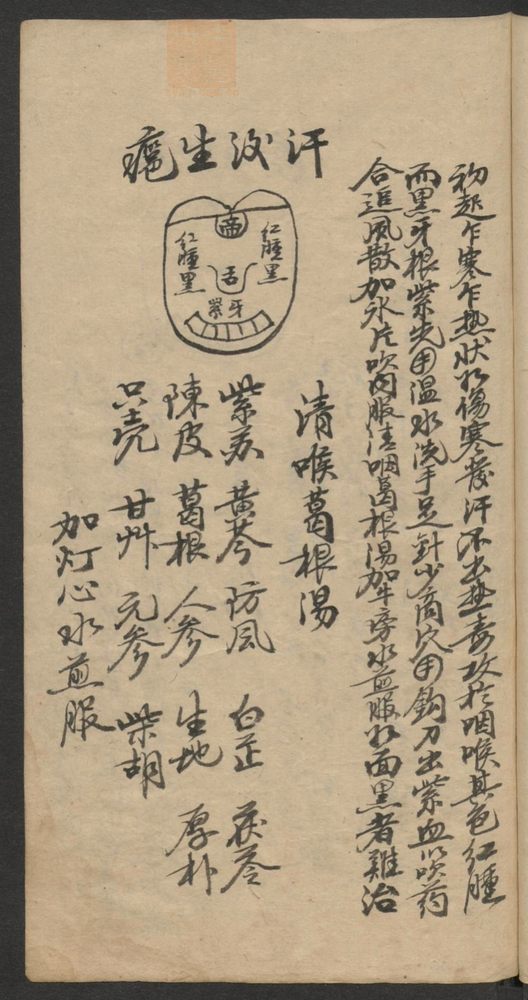 初起乍寒乍热状似傷寒發汗不出热毒攻於咽喉其色红腫
而黑牙根紫先用温水洗手足針少商穴用鈎刀出紫血以吹药
合追风散加氷片吹内服清咽葛根湯加牛旁水煎服如面黑者難治
汗後生癍
帝
红腫黑
红腫黑
舌
紫牙
清喉葛根湯
紫苏 黄芩 防風 白芷 茯苓
陳皮 葛根 人参 生地 厚朴
只壳 甘艸 元参 柴胡
加灯心水煎服